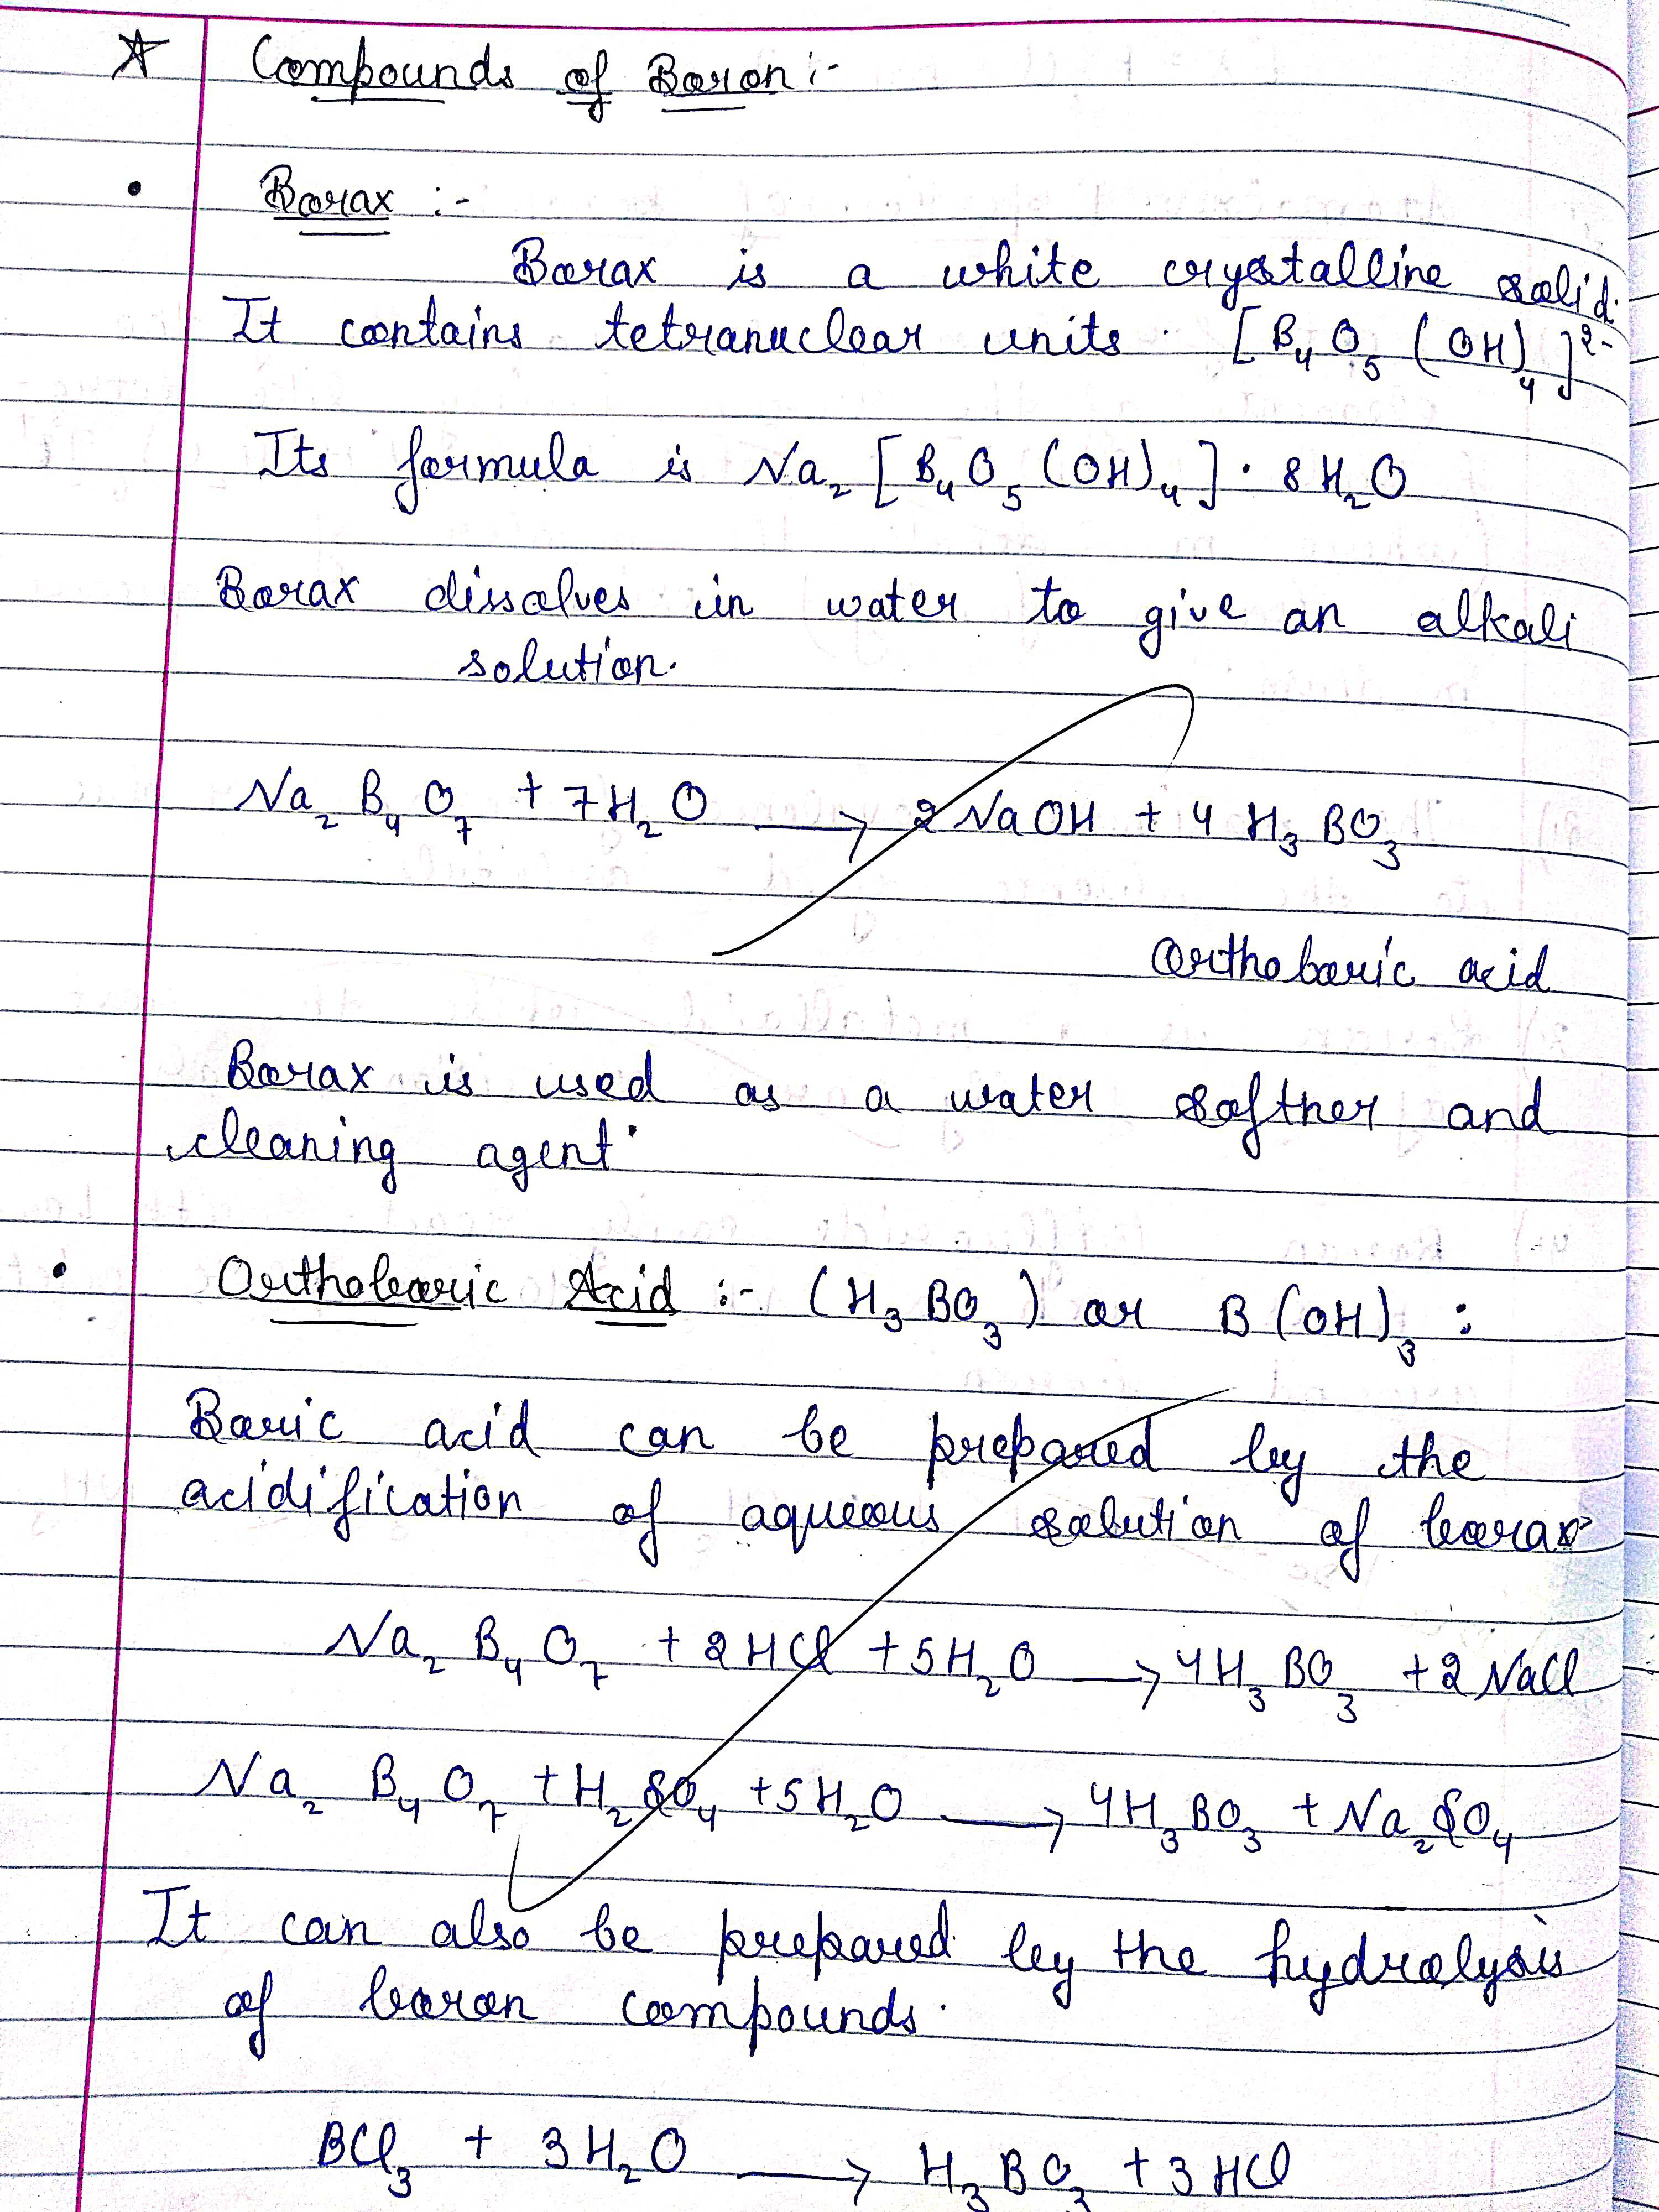 ☆ Compounds of Boron :-
• Borax :-
Borax is a white crystalline solid.
It contains tetranuclear units. [B₄O₅(OH)₄]²⁻
Its formula is Na₂[B₄O₅(OH)₄]·8H₂O
Borax dissolves in water to give an alkali
solution.
Na₂B₄O₇ + 7H₂O → 2NaOH + 4H₃BO₃
Orthoboric acid
Borax is used as a water softner and
cleaning agent.
• Orthoboric Acid :- (H₃BO₃) or B(OH)₃ :
Boric acid can be prepared by the
acidification of aqueous solution of borax
Na₂B₄O₇ + 2HCl + 5H₂O → 4H₃BO₃ + 2NaCl
Na₂B₄O₇ + H₂SO₄ + 5H₂O → 4H₃BO₃ + Na₂SO₄
It can also be prepared by the hydrolysis
of boron compounds.
BCl₃ + 3H₂O → H₃BO₃ + 3HCl